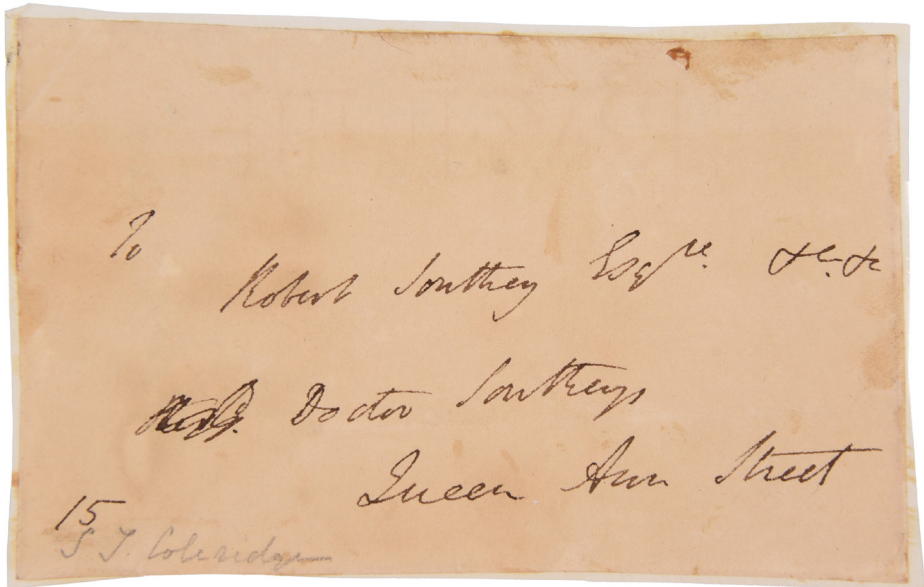 To
Robert Southey Esqre. &c. &c
Doctor Southeys
Queen Ann Street
15
S T. Coleridge